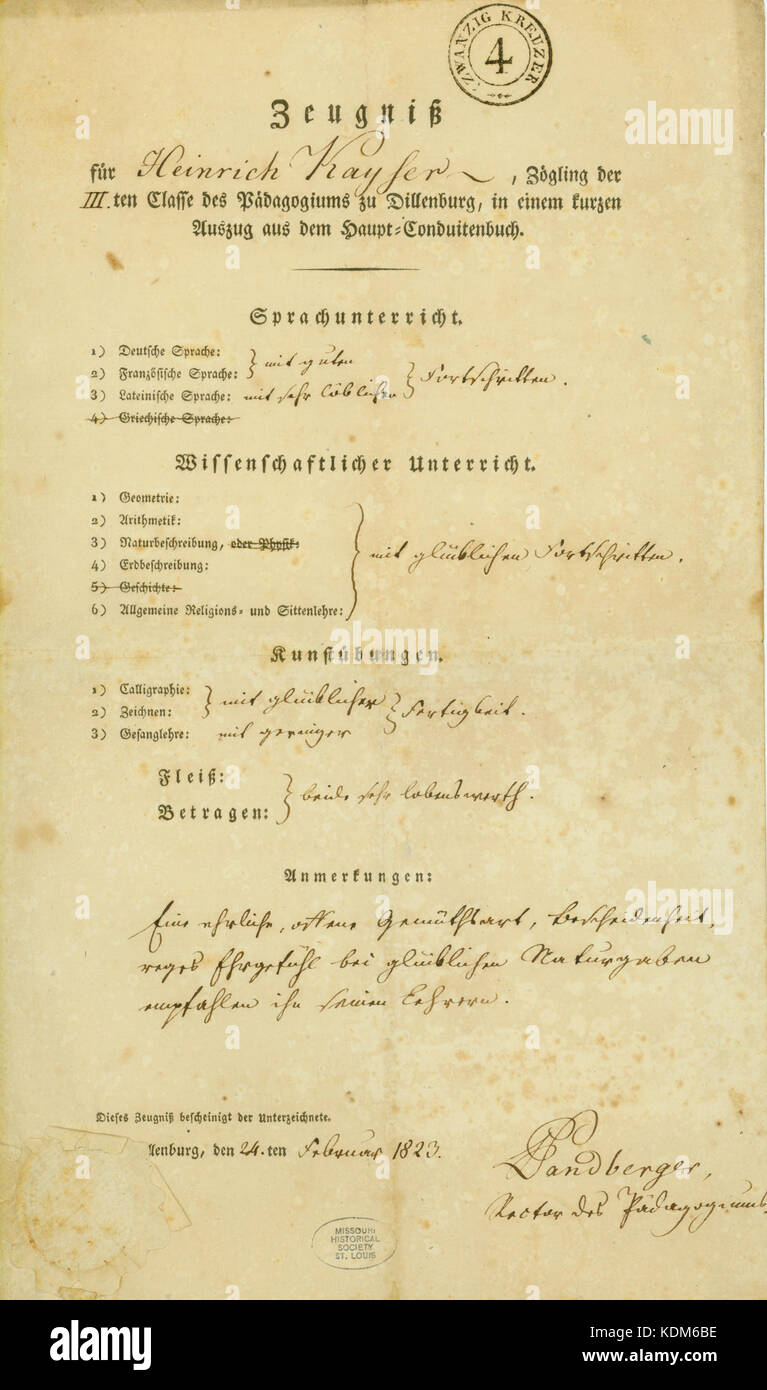 ZWANZIG KREUZER
4
Zeugniß
für Heinrich Kayser, Zögling der
III.ten Classe des Pädagogiums zu Dillenburg, in einem kurzen
Auszug aus dem Haupt-Conduitenbuch.
Sprachunterricht.
1) Deutsche Sprache:
2) Französische Sprache: mit guten
3) Lateinische Sprache: mit sehr löblichen Fortschritten.
4) Griechische Sprache:
Wissenschaftlicher Unterricht.
1) Geometrie:
2) Arithmetik:
3) Naturbeschreibung, oder Physik:
4) Erdbeschreibung: mit glücklichen Fortschritten.
5) Geschichte:
6) Allgemeine Religions- und Sittenlehre:
Kunstübungen.
1) Calligraphie:
2) Zeichnen: mit glücklicher Fertigkeit.
3) Gesanglehre: mit geringer
Fleiß:
Betragen: beide sehr lobenswerth.
Anmerkungen:
Eine ehrliche, offene Gemüthsart, Bescheidenheit,
reges Ehrgefühl bei glücklichen Naturgaben
empfahlen ihn seinen Lehrern.
Dieses Zeugniß bescheinigt der Unterzeichnete.
llenburg, den 24.ten Februar 1823.
Sandberger,
Rector des Pädagogiums.
MISSOURI
HISTORICAL
SOCIETY
ST. LOUIS
alamy
alamy stock photo
KDM6BE
www.alamy.com